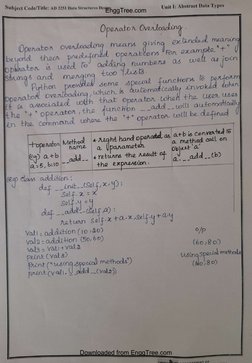 Subject Code/Title: AD 3251 Data Structures Design
EnggTree.com
Unit I: Abstract Data Types
Operator Overloading
Operator overloading means giving extended meaning
beyond their predefined operations. For example, "+"
operator is used for adding numbers as well as join
strings and merging two lists
Python provides some special functions to perform
operator overloading, which is automatically invoked when
it is associated with that operator. when the user uses
the "+" operator, the function __add__ will automatically
the command where the "+" operator will be defined
operator
Method name
* Right hand operator as a parameter
a+b is converted to a method call on object 'a'
eg) a+b
a=5, b=10
__add__
* returns the result of the expression.
a.__add__(b)
class addition:
def __init__(self, x, y):
self.x = x
self.y = y
def __add__(self, a):
return self.x+a.x, self.y+a.y
Val1 = addition (10, 20)
o/p
Val2 = addition (50, 60)
(60, 80)
Val3 = Val1 + Val2
print (Val3)
Using special methods
print ("using special methods")
(60, 80)
print (Val1.__add__(Val2))
Downloaded from EnggTree.com